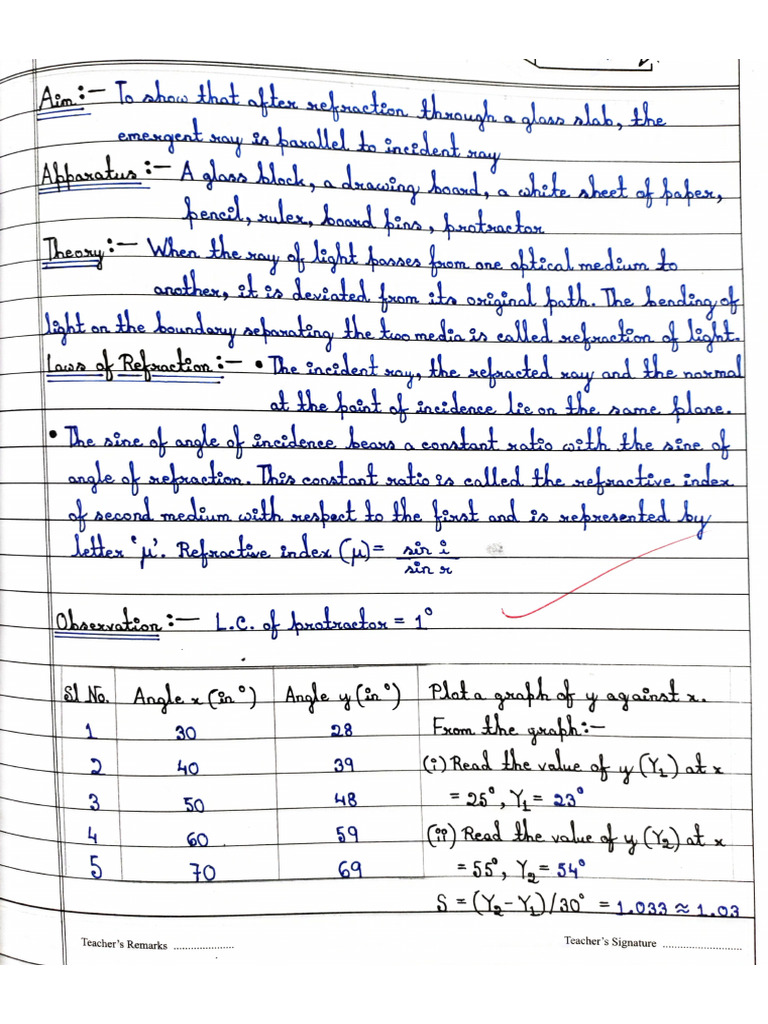 Aim:- To show that after refraction through a glass slab, the
emergent ray is parallel to incident ray
Apparatus:- A glass block, a drawing board, a white sheet of paper,
pencil, ruler, board pins, protractor
Theory:- When the ray of light passes from one optical medium to
another, it is deviated from its original path. The bending of
light on the boundary separating the two media is called refraction of light.
Laws of Refraction:- • The incident ray, the refracted ray and the normal
at the point of incidence lie on the same plane.
• The sine of angle of incidence bears a constant ratio with the sine of
angle of refraction. This constant ratio is called the refractive index
of second medium with respect to the first and is represented by
letter 'μ'. Refractive index (μ) = sin i / sin r
Observation:- L.C. of protractor = 1°
Sl No. Angle x (in °) Angle y (in °) Plot a graph of y against x.
1 30 28 From the graph:-
2 40 39 (i) Read the value of y (Y₁) at x
3 50 48 = 25°, Y₁ = 23°
4 60 59 (ii) Read the value of y (Y₂) at x
5 70 69 = 55°, Y₂ = 54°
S = (Y₂-Y₁)/30° = 1.033 ≈ 1.03
Teacher's Remarks ....................
Teacher's Signature ..........................